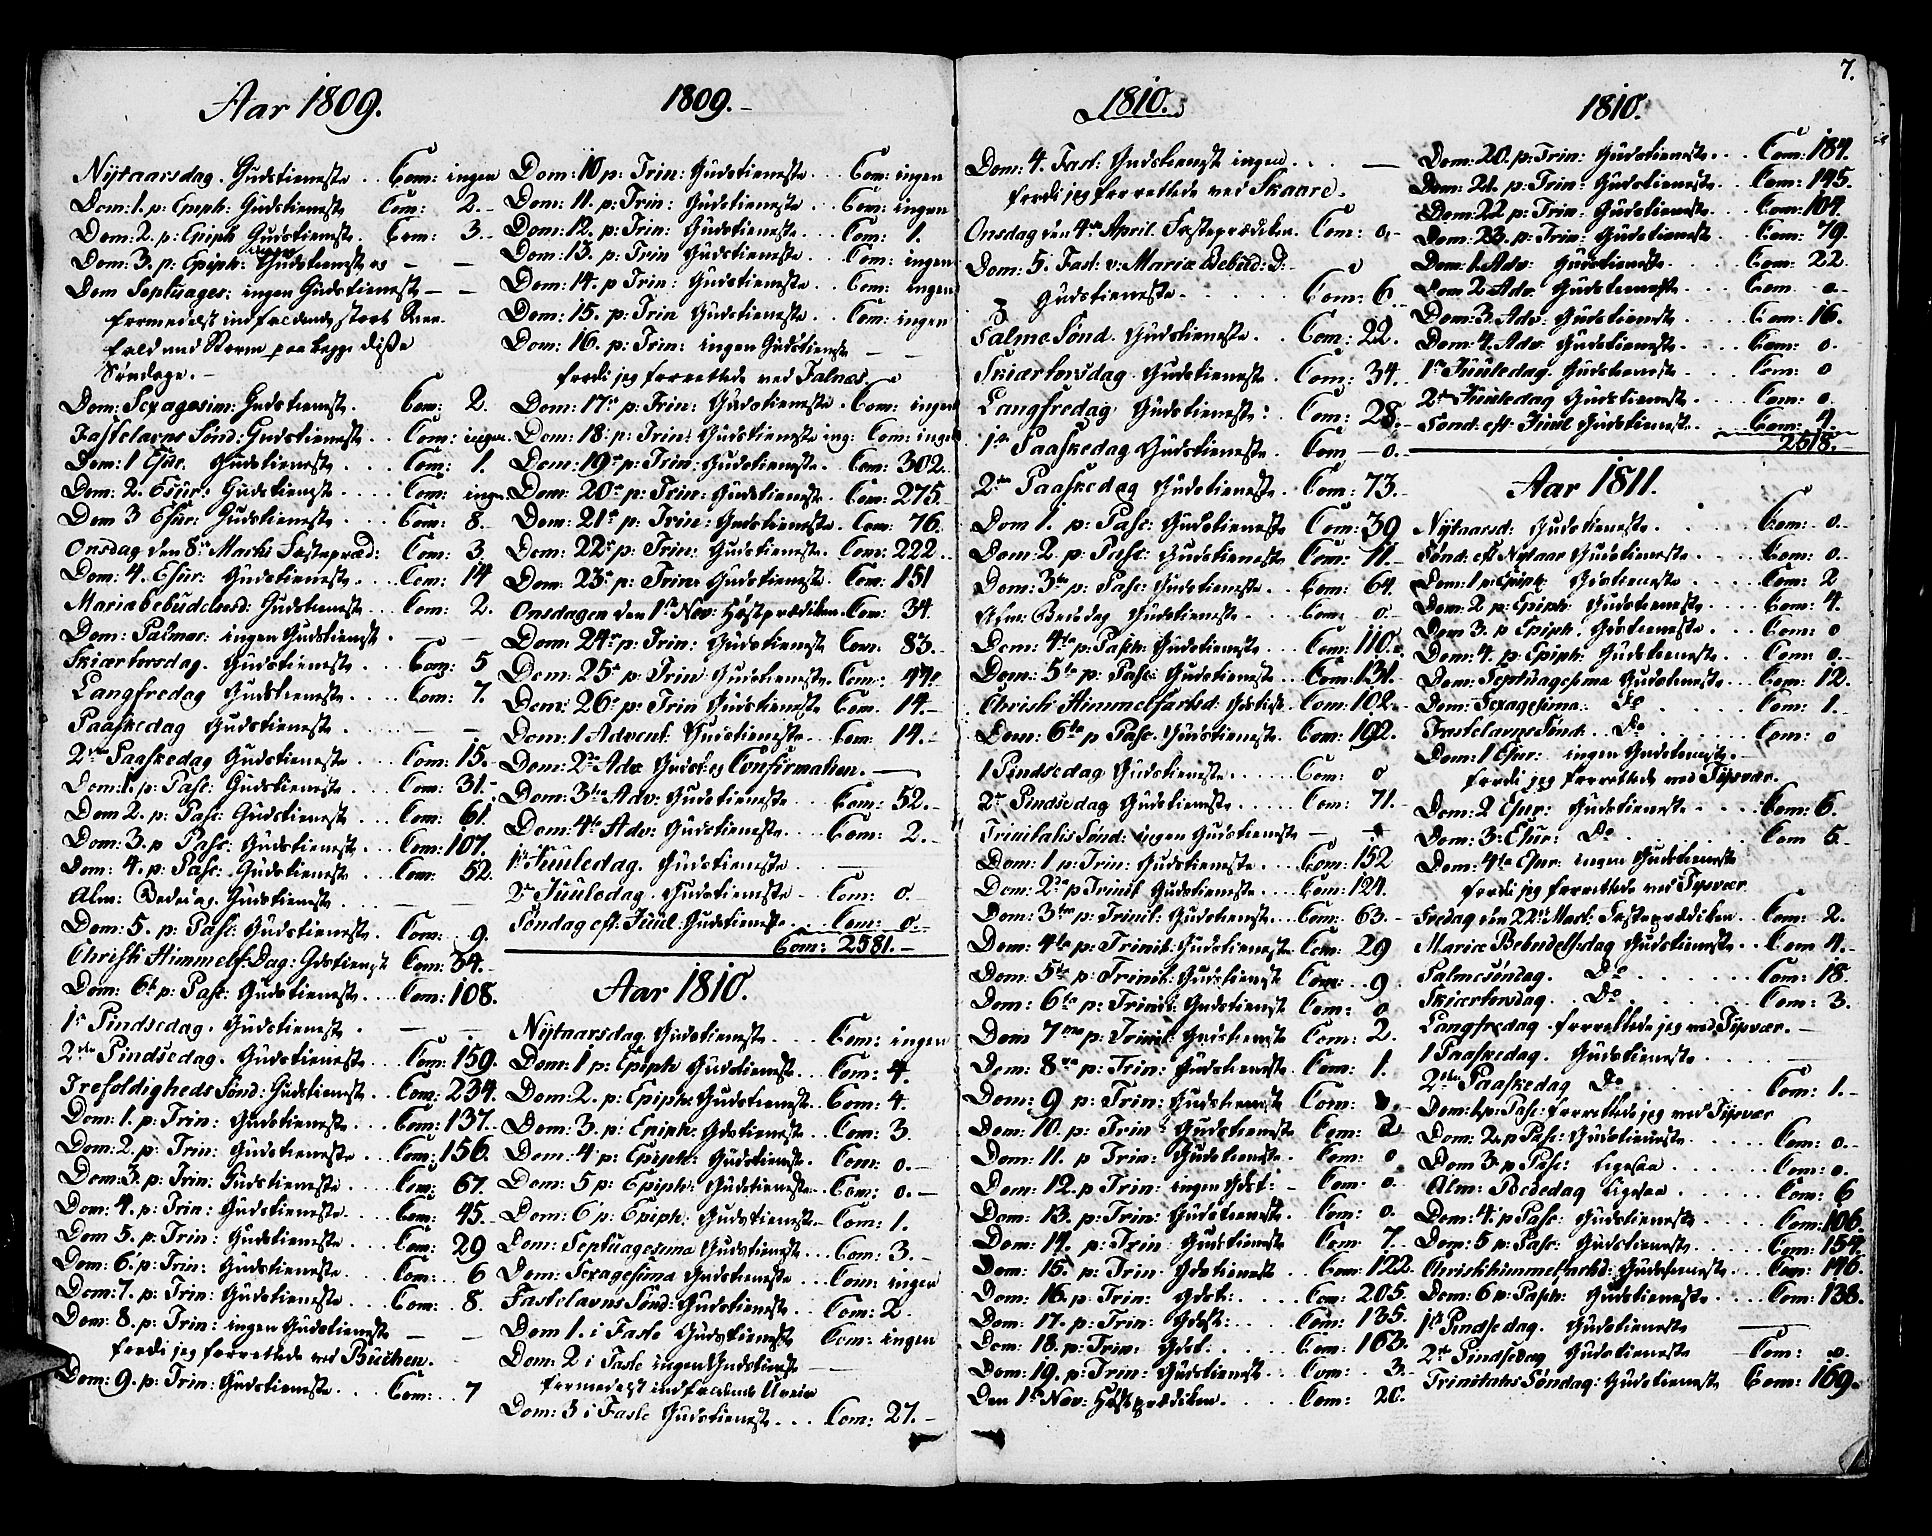 Aar 1809.
Nÿtaarsdag. Gudstieneste .. Com: ingen
Dom: 1. p: Epiph: Gudstieneste Com: 2.-
Dom: 2. p: Epiph Gudstieneste Com: 3.-
Dom: 3. p: Epiph: Gudstieneste
Dom Septuages: ingen Gudstieneste - -
formedelst indfaldende stort Snee
fald und Storm paa begge disse
Søndage. -
Dom: Sexagesim: Gudstieneste. Com: 2.
Fastelavns Sønd: Gudstieneste .. Com: ingen.
Dom: 1 Esur. Gudstieneste .... Com: 1.
Dom: 2. Esur: Gudstieneste .... Com: ingen
Dom 3 Esur: Gudstieneste .... Com: 8.-
Onsdag den 8de Marti Fastepræd: Com: 3.
Dom: 4. Esur: Gudstieneste .... Com: 14
Mariæbebudelsesd: Gudstieneste ... Com: 2.
Dom: Palmar: ingen Gudstieneste . - -
Skiærtorsdag. Gudstieneste ... Com: 5
Langfredag Gudstieneste .... Com: 7.
Paaskedag Gudstieneste . . . - -
2den Paaskedag Gudstieneste ... Com: 15.-
Dom: 1. p: Pasc: Gudstieneste ... Com: 31.-
Dom 2. p: Pasc: Gudstieneste ... Com: 61.
Dom: 3. p Pasc: Gudstieneste ... Com: 107.
Dom: 4. p: Pasc: Gudstieneste .. Com: 52.
Alm: Bededag. Gudstieneste . . . - -
Dom: 5. p: Pasc: Gudstieneste . Com: 9.
Christi Himmelf: Dag: Gdstieneste Com: 34.-
Dom: 6te p: Pasc: Gudstieneste ... Com: 108.
1ste Pindsedag. Gudstieneste . - -
2den Pindsedag. Gudstieneste ... Com: 159.
Trefoldigheds Sønd: Gudstieneste .. Com: 234.
Dom: 1. p: Trin: Gudstieneste .... Com: 137.
Dom: 2. p: Trin: Gudstieneste ... Com: 156.
Dom: 3. p: Trin: Gudstieneste .... Com: 67.
Dom: 4. p: Trin: Gudstieneste .... Com: 45.-
Dom 5. p: Trin: Gudstieneste .... Com: 29
Dom: 6. p: Trin: Gudstieneste .... Com: 6
Dom: 7. p: Trin: Gudstieneste .... Com: 8.
Dom: 8. p: Trin: ingen Gudstieneste - -
fordi jeg forrettede ved Buchen.
Dom: 9. p: Trin: Gudstieneste ... Com: 7
1809.-
Dom: 10 p: Trin: Gudstieneste ... Com: ingen
Dom: 11. p: Trin: Gudstieneste ... Com: ingen
Dom: 12. p: Trin: Gudstieneste ... Com: 1.
Dom: 13. p: Trin Gudstieneste ... Com: ingen
Dom: 14. p Trin: Gudstieneste ... Com: ingen
Dom: 15. p: Trin Gudstieneste ... Com: ingen
Dom: 16. p: Trin: ingen Gudstieneste - -
fordi jeg forrettede ved Falnæs.
Dom: 17de p: Trin: Gudstieneste . Com: ingen
Dom: 18: p: Trin: Gudstieneste ing: Com: ingen
Dom: 19de p: Trin: Gudstieneste. Com: 302.
Dom: 20de p: Trin: Gudstieneste . Com: 275.
Dom: 21de p: Trin: Gudstieneste . Com: 76.
Dom: 22de p: Trin: Gudstieneste. Com: 222.
Dom: 23de p: Trin: Gudstieneste. Com: 151
Onsdagen den 1ste Nov: Høstprædiken. Com: 34.
Dom: 24de p: Trin: Gudstieneste Com: 83.-
Dom: 25de p: Trin: Gudstieneste. Com: 44.
Dom: 26de p: Trin Gudstieneste . Com: 14.-
Dom: 1 Advent. Gudstieneste .. Com: 14.-
Dom: 2den Adv Gudst: og Confirmation. -
Dom: 3die Adv: Gudstieneste ... Com: 52.-
Dom: 4de Adv: Gudstieneste ... Com: 2.-
1ste Juuledag. Gudstieneste -
2den Juuledag. Gudstieneste - Com: 0.-
Søndag eft: Juul: Gudstieneste.. Com: 0.-
Com: 2581.-
Aar 1810.
Nÿtaarsdag. Gudstieneste ... Com: ingen
Dom: 1 p: Epiph Gudstieneste ... Com: 4.
Dom: 2. p: Epiph: Gudstieneste . Com: 4.
Dom: 3. p: Epiph: Gdstieneste .. Com: 3.
Dom: 4 p: Epiph: Gudstieneste.. Com: 0.-
Dom: 5 p: Epiph: Gudstieneste. Com: 0.-
Dom: 6 p: Epiph: Gudstieneste - Com: 1.
Dom: Septuagesima Gudstieneste .. Com: 3.-
Dom: Sexagesima Gudstieneste ... Com: ingen
Fastelavns Sønd: Gudstieneste .. Com: 2
Dom 1. i Faste Gudstieneste Com: ingen
Dom: 2 i Faste ingen Gudstieneste -
formedelst indfaldende
Dom: 3 i Faste Gudstieneste ... Com: 27.-
1810.
Dom: 4. Fast: Gudstieneste ingen . . . -
fordi jeg forrettede ved Skaare.
Onsdag den 4de April. Fasteprædiken. Com: 0.-
Dom: 5. Fast: v: Mariæ Bebud: D:
Gudstieneste . . . . . Com: 6.
Palme Sønd. Gudstieneste .. Com: 22.
Skiærtorsdag. Gudstieneste . Com: 34.-
Langfredag Gudstieneste: . Com: 28.-
1ste Paaskedag Gudstieneste. Com - 0.-
2den Paaskedag Gudstieneste. Com: 73.-
Dom 1. p: Pasc: Gudstieneste Com: 39
Dom: 2. p: Pasc: Gudstieneste Com: 11.-
Dom: 3die p: Pasc: Gudstieneste . Com: 64.
Alm: Bededag Gudstieneste . Com: 0.-
Dom: 4de p: Pasch: Gudstieneste .. Com: 110.
Dom: 5te p: Pasc: Gudstieneste .. Com: 131.-
Christi Himmelfartsd: Gdstiste. Com: 102.-
Dom: 6te p Pasc: Gudstieneste. Com: 192.
1 Pindsedag Gudstieneste ...... Com: 0
2den Pindsedag Gudstieneste .... Com: 71.
Trinitatis Sønd: ingen Gudstieneste - -
Dom: 1 p: Trin: Gudstieneste ... Com: 152
Dom: 2den p Trinit: Gudstieneste .. Com: 124.
Dom: 3die p: Trinit: Gudstieneste .. Com: 63.-
Dom: 4de p: Trinit: Gudstieneste ... Com: 29
Dom: 5te p: Trinit: Gudstieneste Com: 9
Dom: 6te p: Trinit: Gudstieneste Com: 0
Dom 7ende p: Trinit: Gudstieneste Com: 2.
Dom: 8de p: Trin: Gudstieneste. Com: 1.
Dom: 9 p: Trin: Gudstieneste Com: 0.-
Dom: 10. p: Trin: Gudstieneste Com: 2
Dom: 11. p Trin: Gudstieneste . Com: 0
Dom: 12. p Trin: ingen Gdst: - Com: 0.
Dom: 13. p: Trin: Gudstieneste . Com: 0.
Dom: 14. p: Trin: Gudstieneste Com: 7.-
Dom: 15. p: Trin Gdstieneste .. Com: 122.
Dom: 16. p: Trin: Gdst: ..... Com: 205.
Dom: 17. p: Trin: Gdst: ..... Com: 135.
Dom: 18. p: Trin: Gdst. ..... Com: 163.
Dom: 19. p: Trin: Gudstieneste .. Com: 3.-
Den 1ste Nov: Høstprædiken. .... Com: 20.
7.
1810.
Dom: 20. p: Trin: Gudstieneste ... Com: 184.
Dom: 21. p: Trin: Gudstieneste .. Com: 145.
Dom: 22 p: Trin: Gudstieneste ... Com: 104.
Dom: 23. p: Trin: Gudstieneste .. Com: 79.
Dom: 1. Adv: Gudstieneste. ... Com: 22.
Dom 2. Adv: Gudstieneste . . Com 0.-
Dom: 3 Adv: Gudstieneste .... Com: 16.
Dom: 4. Adv. Gudstieneste .... Com: 0.
1ste Juuledag. Gudstieneste .... Com: 0
2den Juuledag Gudstieneste .... Com: 0.
Sønd: eft: Juul Gudstieneste .. Com: 4.
2518.-
Aar 1811.
Nÿtaarsd: Gudstieneste. . . Com: 0.-
Sønd: eft Nÿtaar Gudstieneste .... Com: 0.
Dom: 1 p: Epiph: Gdstieneste ..... Com: 2
Dom: 2 p: Epiph: Gudstieneste .... Com: 4.
Dom 3. p Epiph: Gudstieneste .... Com: 0
Dom: 4. p: Epiph: Gudstieneste ... Com: 0.-
Dom: Septuagesima Gudstieneste .. Com: 12.
Dom: Sexagesima: Do ..... Com: 1.-
Fastelavns Sønd: Do ..... Com: 0
Dom: 1 Esur: ingen Gudstieneste. -
fordi jeg forrettede ved Tÿsvær.
Dom: 2 Esur: Gudstieneste ..... Com: 6.
Dom: 3: Esur: Do . . . . . Com 5.-
Dom: 4de Esur: ingen Gudstieneste
fordi jeg forrettede ved Tÿsvær
Fredag den 22de Mart: Fasteprædiken . Com: 2.
Mariæ Bebudelsesdag Gudstieneste .. Com 4.-
Palmesøndag. Do . . . . . Com: 18.
Skiærtorsdag. . Do . . . . . Com: 3.
Langfredag. forrettede jeg ved Tÿsvær. -
1 Paaskedag. Gudstieneste . . . . -
2den Paaskedag Do . . . . . Com: 1.-
Dom: 1 p: Pasc: forrettede jeg ved Tÿsvær
Dom: 2. p Pasc: Gudstieneste ..... Com: 0.-
Dom 3. p Pasc: ligesaa ...... Com: 0.
Alm: Bededag ligesaa ..... Com: 6
Dom: 4. p Pasc: Gudstieneste ..... Com: 106.
Dom: 5 p: Pasc: Gudstieneste ..... Com: 154.
Christi himmelfartsd: Gudstieneste ... Com: 146.
Dom: 6 p: Pasch: Gudstieneste .... Com: 138.
1ste Pindsedag. Gudstieneste -
2den Pindsedag Gudstieneste - Com: 0.
Trinitatis Søndag: Gudstieneste Com: 169.